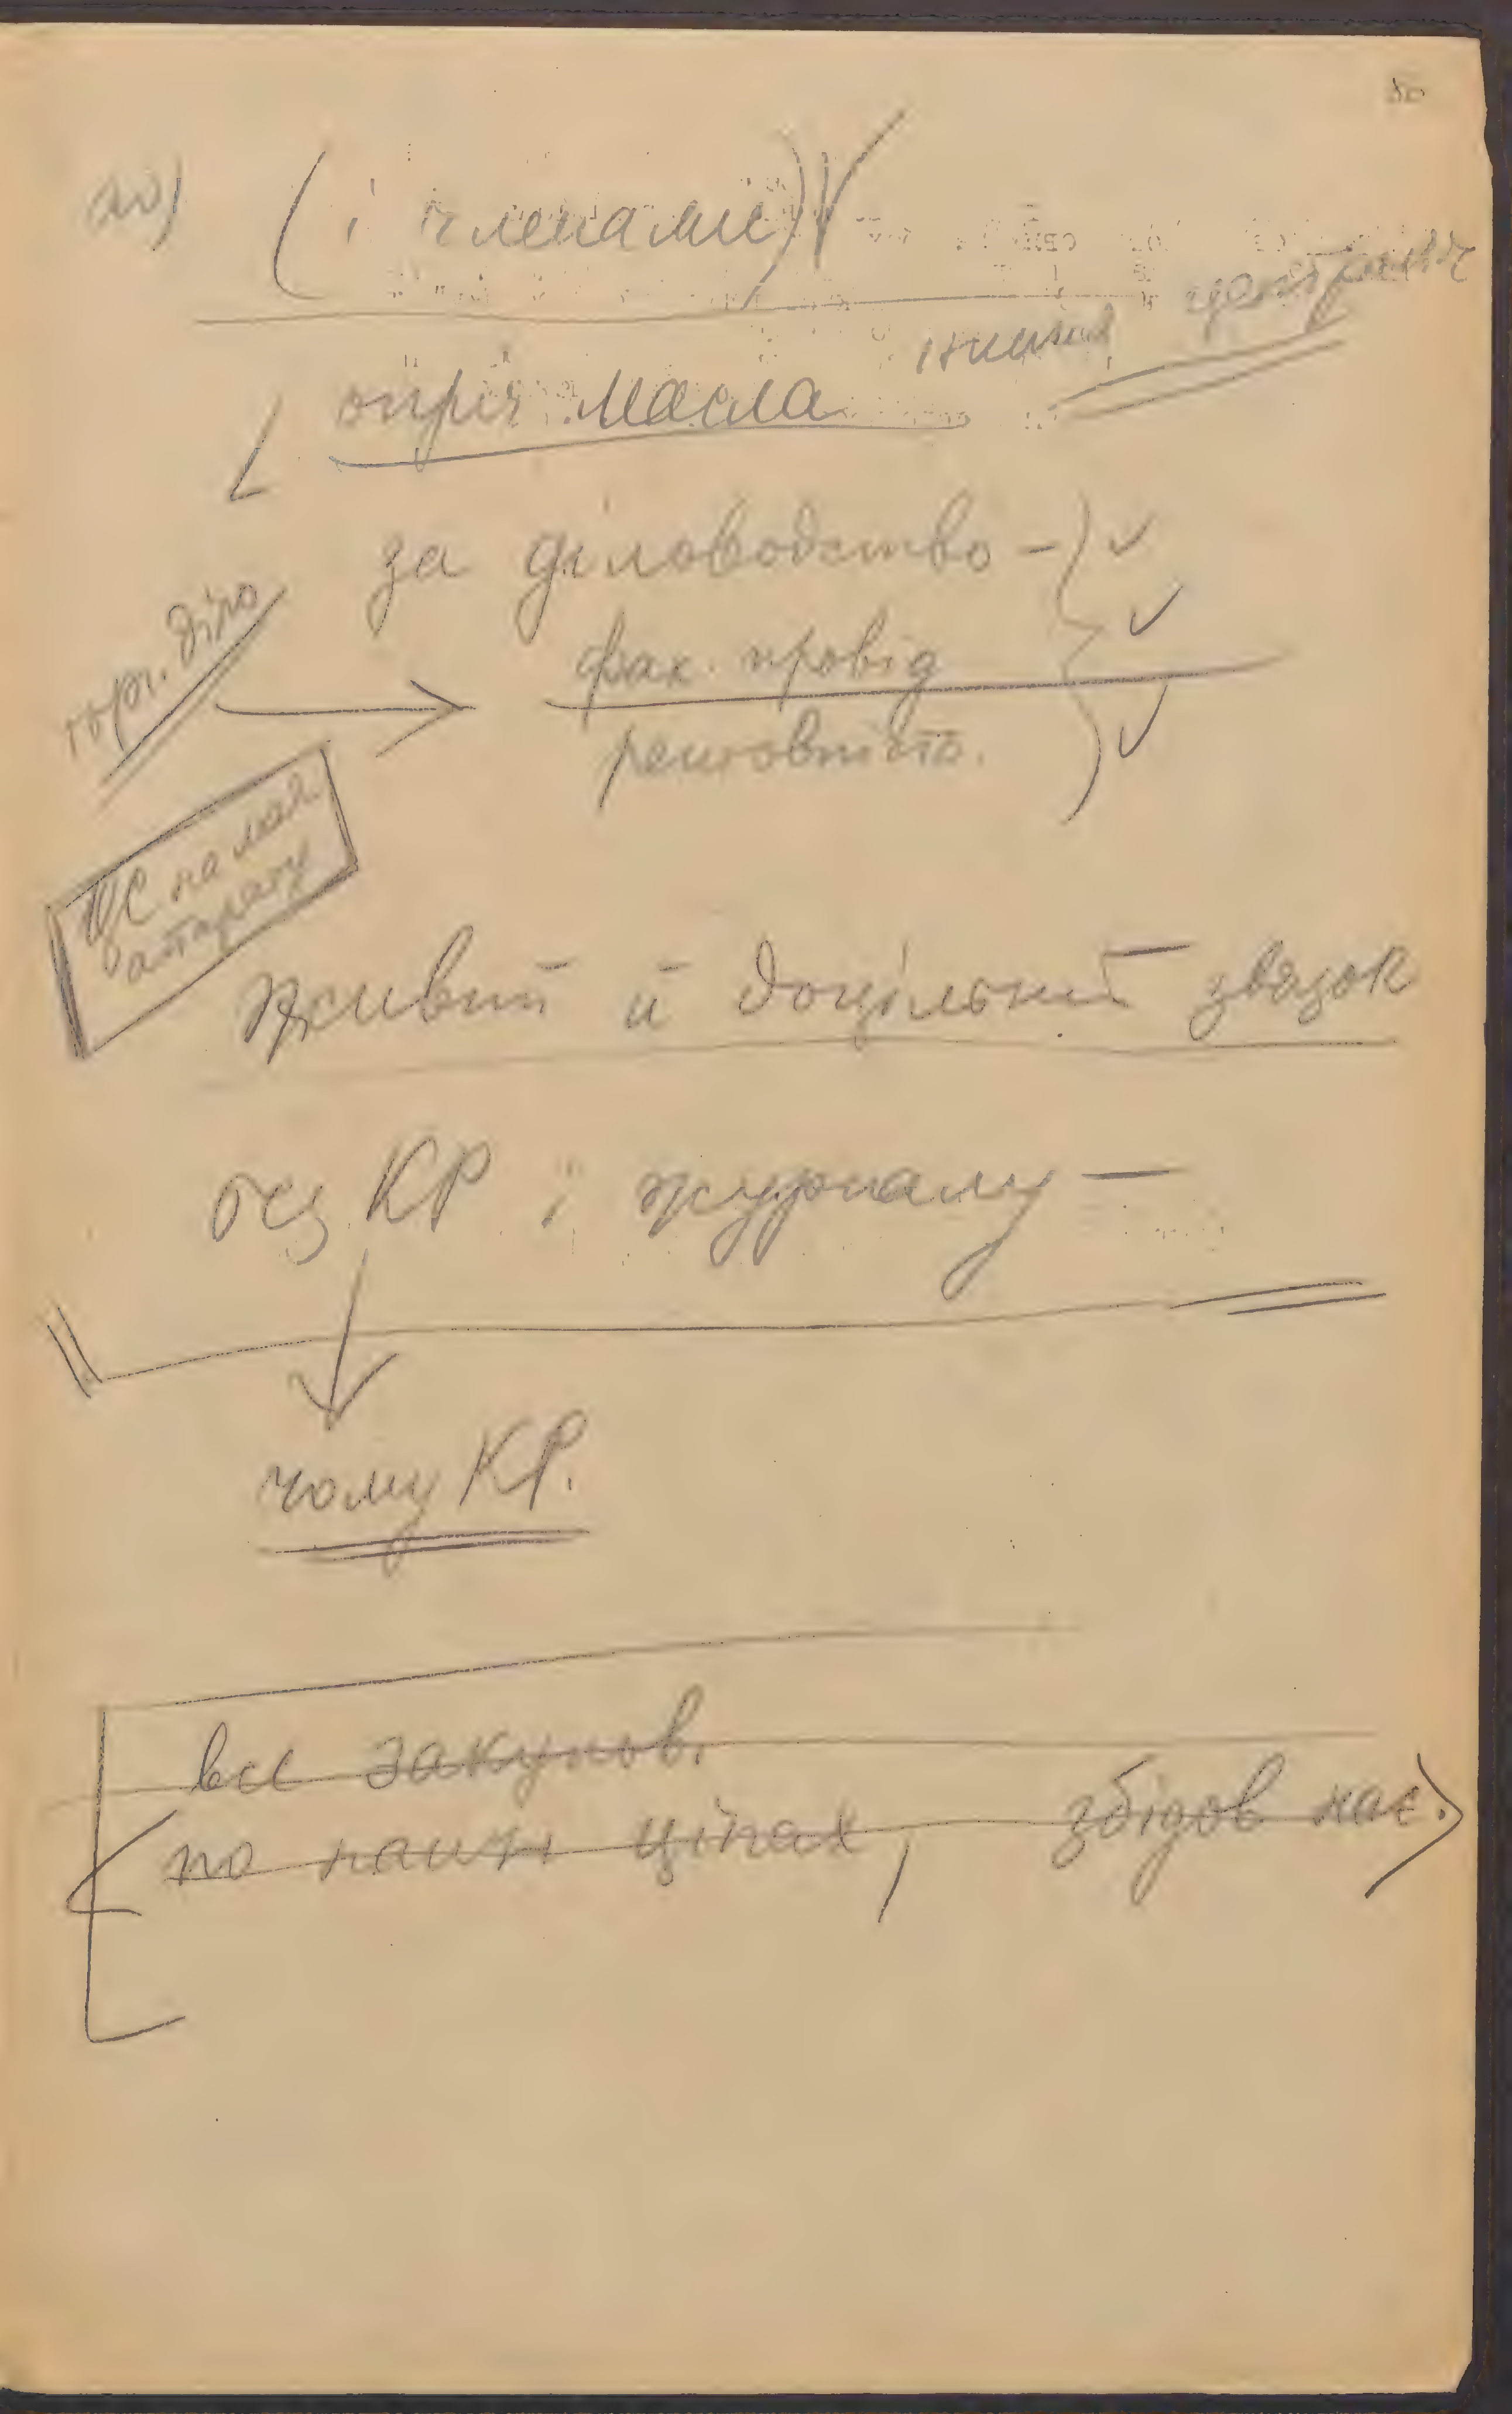 80
(і членами)
центрамі
опріч масла
за діловодство —
торг. діло
фах. провід
рентовність.
РС на має
апарату
живий й доцільний звязок
без КР і журналу —
чому КР.
все закупов.
по наших цінах, збідов нас.